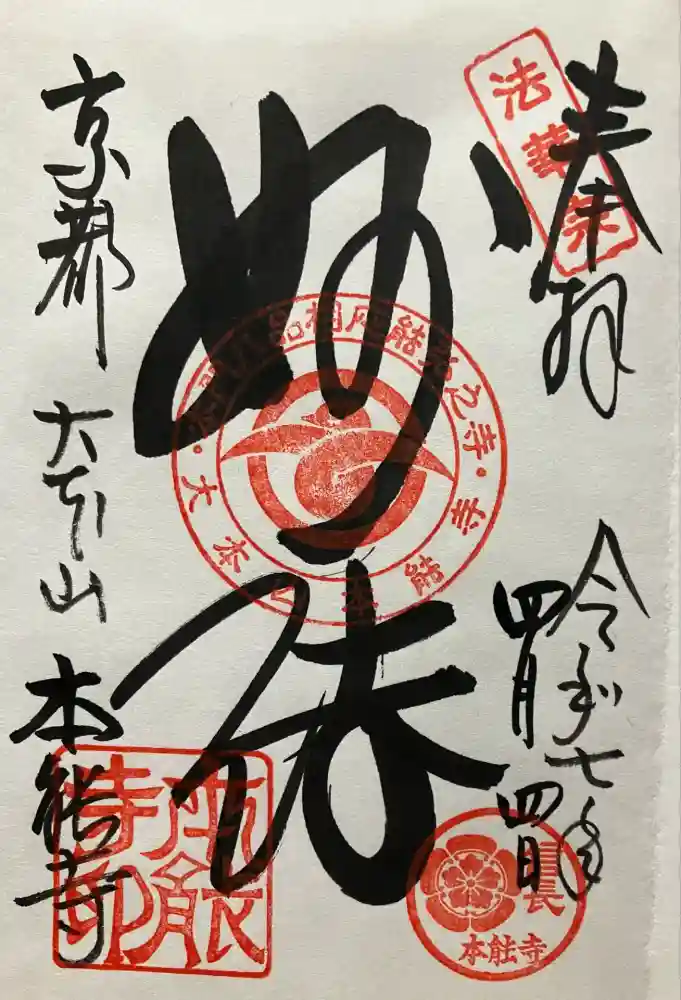 奉拝
法華宗
令和七年
四月四日
妙法
京都
大本山
本能寺
本能寺印
信長
本能寺